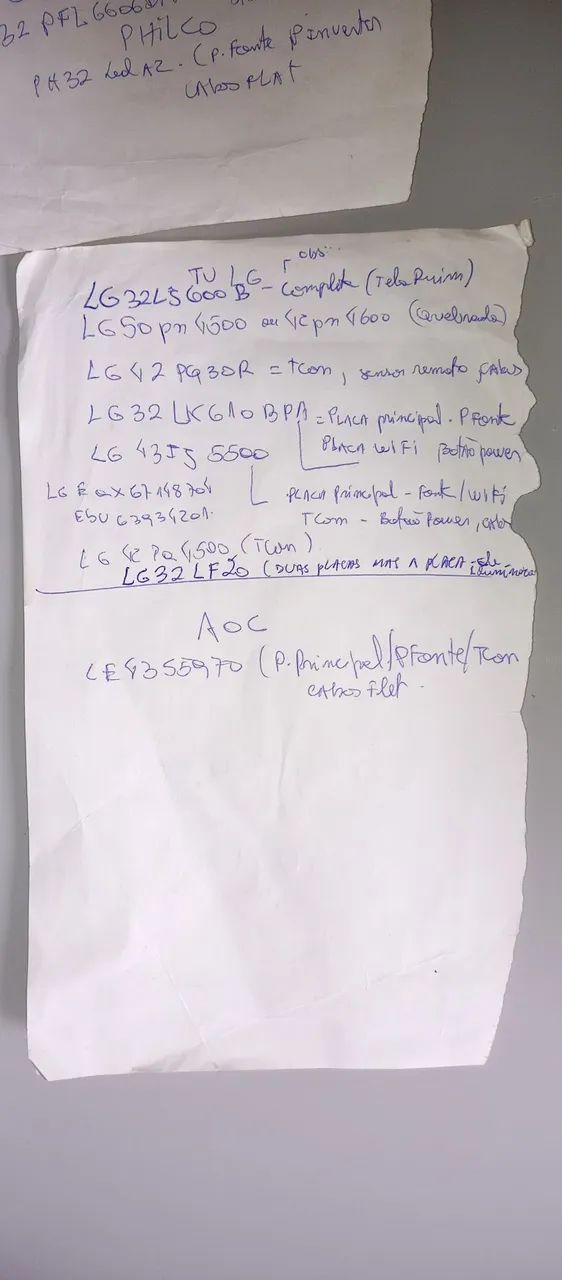 32 PFL
PHILCO
PH32 Led A2. (P. Fonte P inverter
CABOS FLAT
obs...
TV LG
LG32LS600B - Completa (Tela Ruim)
LG50pn4500 ou 42pn4600 (Quebrada)
LG 42 PQ30R = tcon, sensor remoto, CABOS
LG 32 LK610BPA = PLACA principal. P Fonte
PLACA WiFi Botão power
LG 43IJ 5500
LG Eax67148704 PLACA Principal - Fonte/wifi
EBU63934201. TCom - Botão Power, CABOS
LG 42 PQ4500 (TCon)
LG32 LF20 (DUAS PLACAS MAS A PLACA
AOC
LE43S5970 (P. Principal/PFonte/Tcon
CABOS Flet.